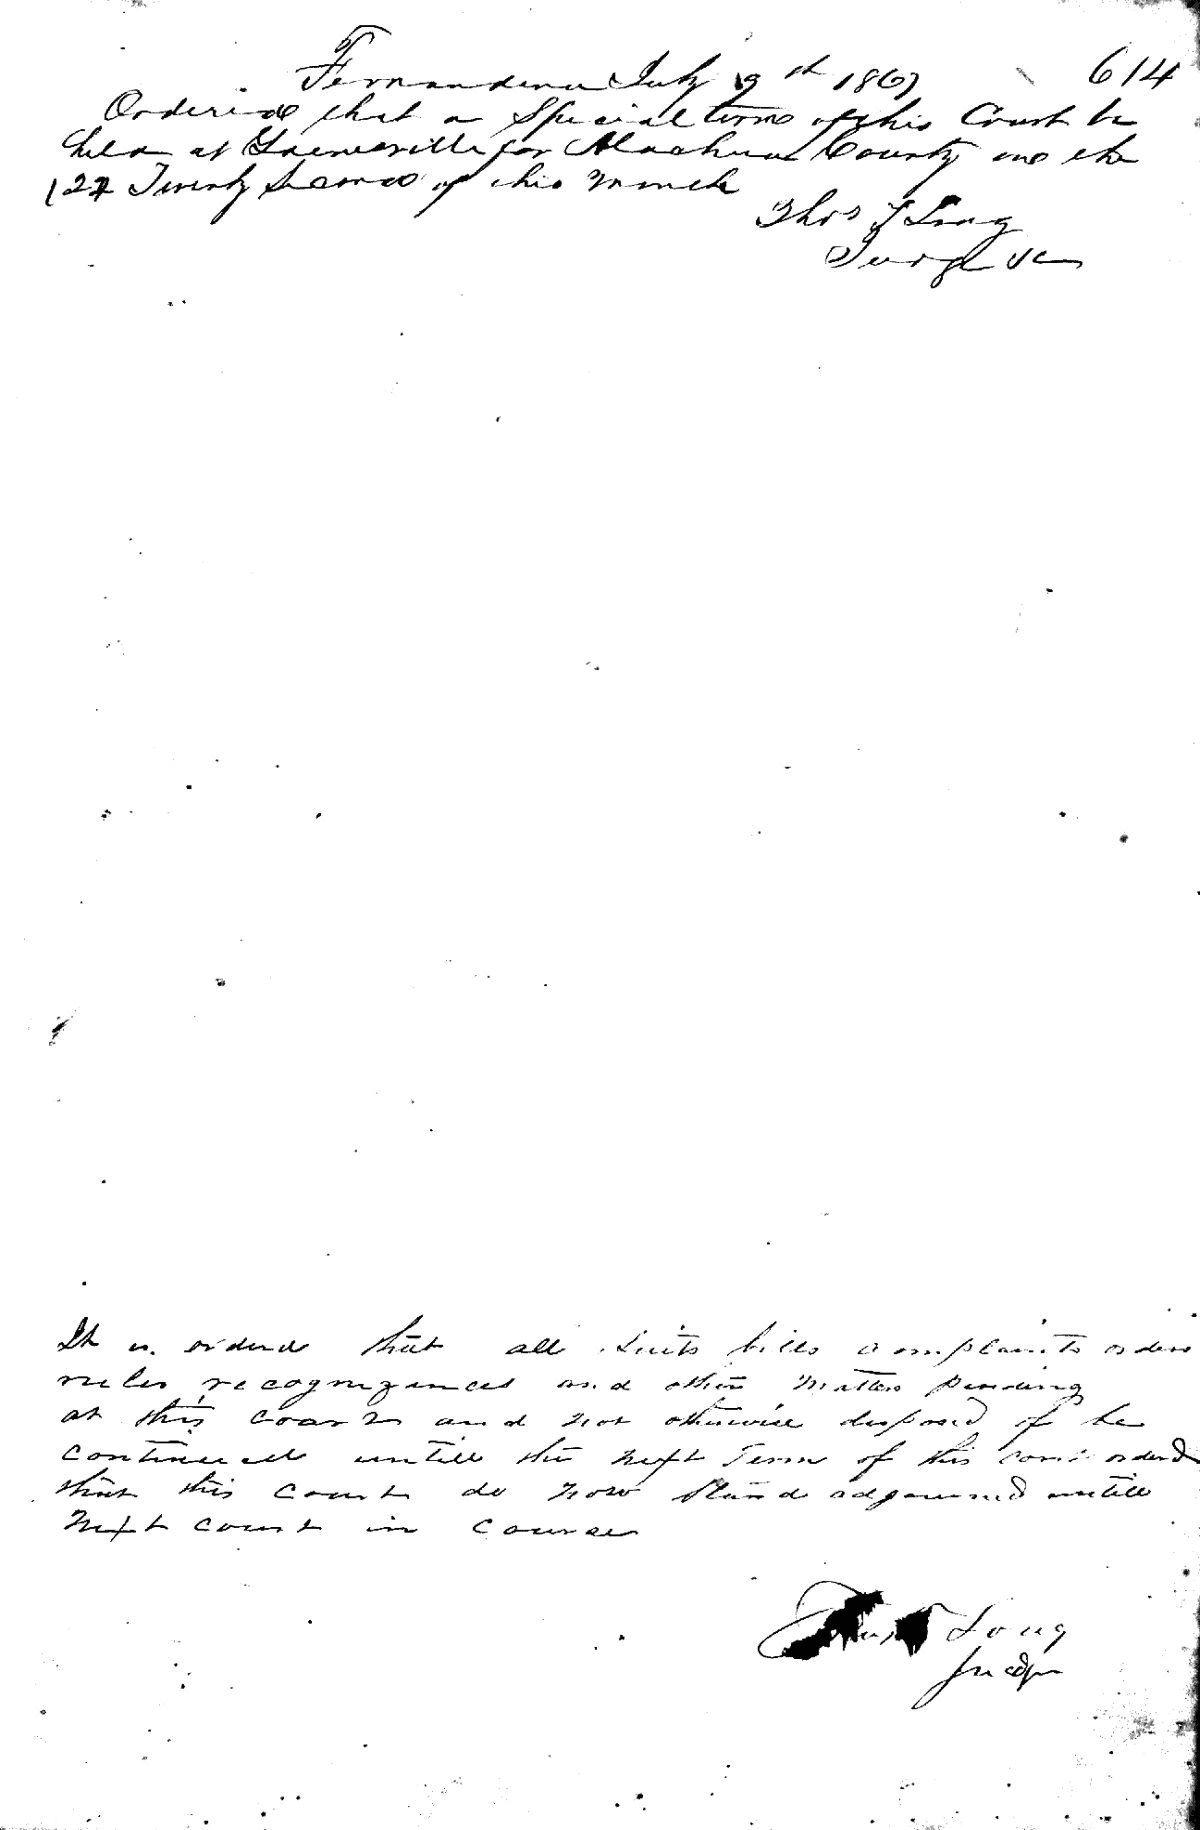 614
Fernandina July 9th 1867
Ordered that a Special term of this Court be
held at Gainesville for Alachua County on the
(22 Twenty Second of this month
Thos T Long
Judge
It is orderd that all suits bills complaints orders
rules recognizances and other matters pending
at this court and not otherwise disposed of be
continued untill the next Term of this court orderd
that this Court do now stand adjourned untill
next court in course
Long
Judge